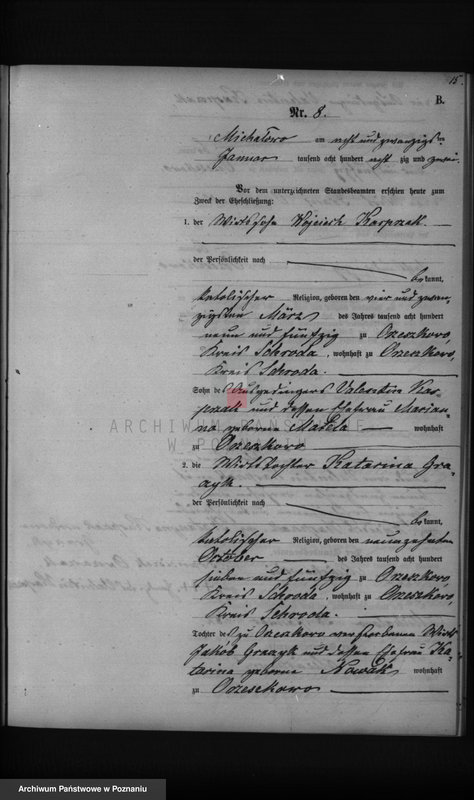 15.
B.
Nr. 8.
Michalowo am acht und zwanzigsten
Januar tausend acht hundert acht zig und zwei.
Vor dem unterzeichneten Standesbeamten erschien heute zum
Zweck der Eheschließung:
1. der Wirthssohn Wojciech Kasprzak.
der Persönlichkeit nach
be kannt,
katolischer Religion, geboren den vier und zwan-
zigsten März des Jahres tausend acht hundert
neun und fünfzig zu
Kreis Schroda, wohnhaft zu
Kreis Schroda.
Sohn des Ausgedingers Valentin Kas-
przak und dessen Ehefrau Marian-
na geborne Matela wohnhaft
ARCHIWUM PAŃSTWOWE
W POZNANIU
zu
2. die Wirthstochter Katarina Gra-
czyk.
der Persönlichkeit nach
be kannt,
katolischer Religion, geboren den neunzehnten
October des Jahres tausend acht hundert
sieben und fünfzig zu
Kreis Schroda, wohnhaft zu
Kreis Schroda.
Tochter des zu verstorbenen Wirths
Jakob Graczyk und dessen Ehefrau Ka-
tarina geborne Nowak wohnhaft
zu
Archiwum Państwowe w Poznaniu